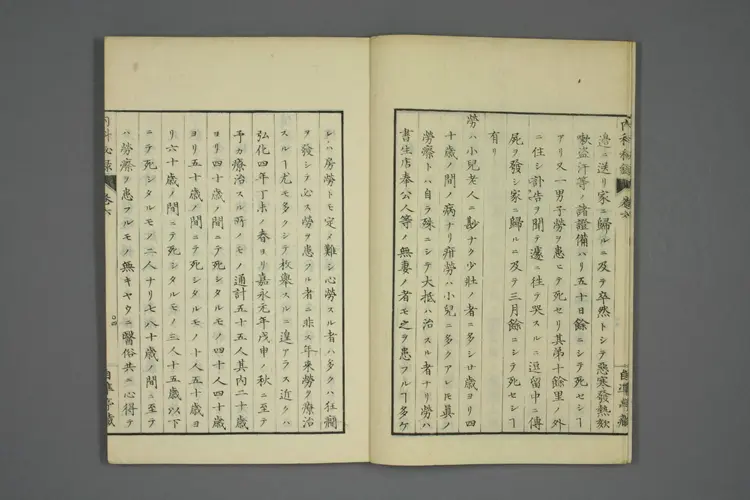 内科秘録 卷六
邉ニ送リ家ニ歸ルニ及テ卒然トシテ惡寒發熱欬
嗽盜汗等ノ諸證備ハリ五十日餘ニシテ死セシ ヿ
アリ又一男子勞ヲ患ヒテ死セリ其弟十餘里ノ外
ニ住シ訃告ヲ聞テ遽ニ往テ哭スルニ逗留中ニ傳
屍ヲ發シ家ニ歸ルニ及テ三月餘ニシテ死セシ ヿ
有リ
勞ハ小兒老人ニ尠ナク少壯ノ者ニ多シ廿歳ヨリ四
十歳ノ間ノ病ナリ疳勞ハ小兒ニ多クアレ𪜈眞ノ
勞瘵トハ自ラ殊ニシテ大抵ハ治スル者ナリ勞ハ
書生店奉公人等ノ無妻ノ者モ之ヲ患フル ヿ多ケ
レハ房勞トモ定メ難シ心勞スル者ハ多クハ狂癎
ヲ發シテ必ス勞ヲ患フル者ニ非ス年來勞ヲ療治
スル ヿ尤モ多クシテ枚擧スルニ遑アラス近クハ
弘化四年丁未ノ春ヨリ嘉永元年戊申ノ秋ニ至テ
予カ療治スル所ノモノ通計五十五人其内二十歳
ヨリ四十歳ノ間ニテ死シタルモノ四十人四十歳
ヨリ五十歳ノ間ニテ死シタルモノ十人五十歳ヨ
リ六十歳ノ間ニテ死シタルモノ三人十五歳以下
ニテ死シタルモノ二人ナリ七八十歳ノ間ニ至テ
ハ勞瘵ヲ患フルモノ無キヤウニ醫俗共ニ心得テ
内科秘録 卷六